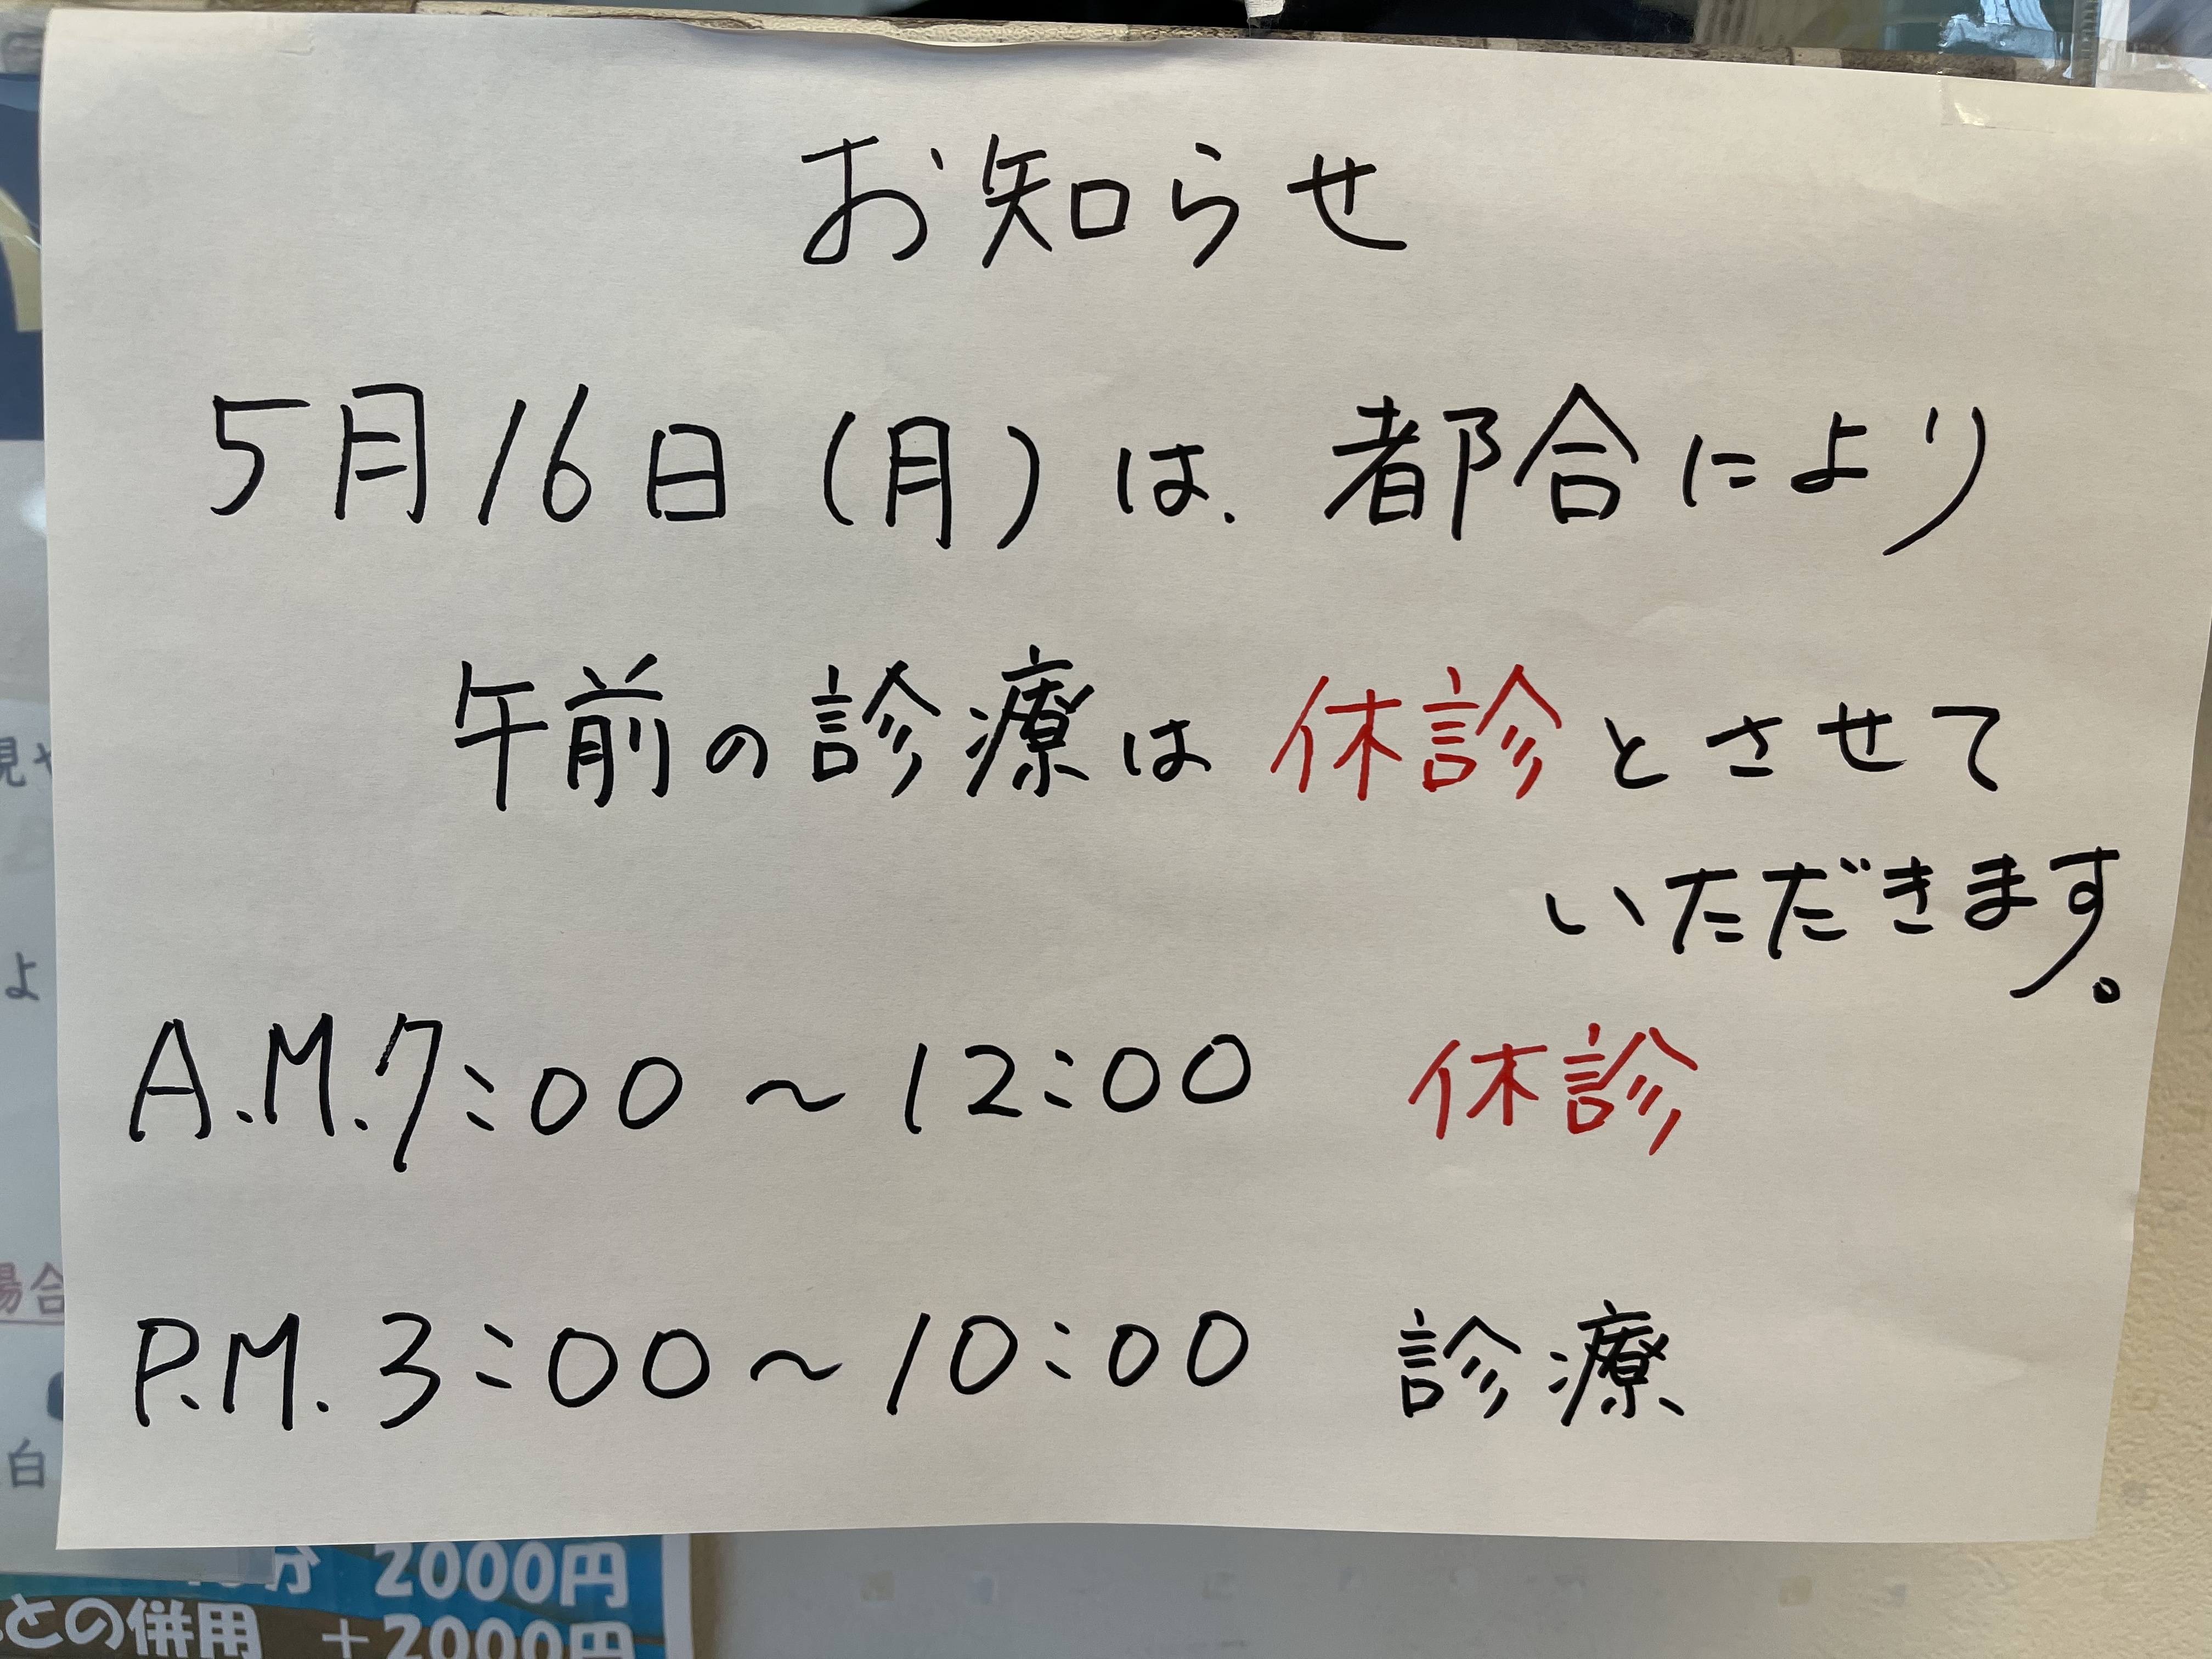 お知らせ
5月16日（月）は、都合により
午前の診療は休診とさせて
いただきます。
A.M.7:00～12:00 休診
P.M.3:00～10:00 診療
見や
よ
場合
白
分 2000円
との併用 +2000円